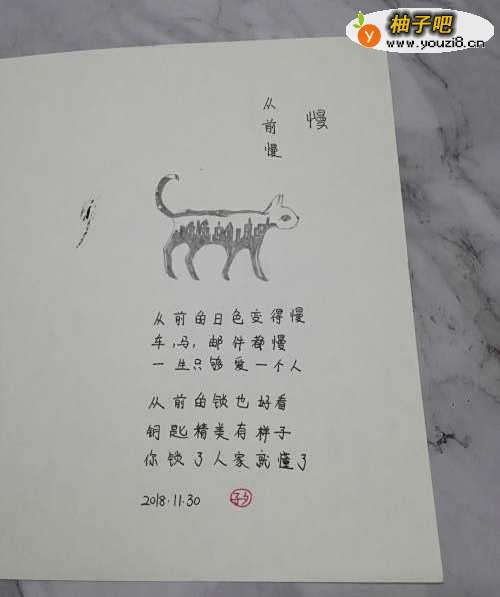 柚子吧
www.youzi8.cn
慢
从前慢
从前的日色变得慢
车,马,邮件都慢
一生只够爱一个人
从前的锁也好看
钥匙精美有样子
你锁了人家就懂了
2018.11.30